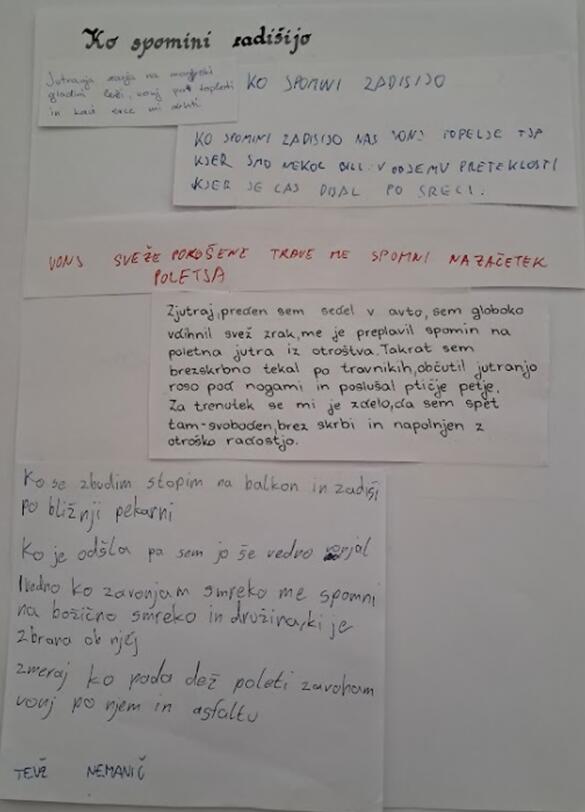 Ko spomini zadišijo
Jutranja zarja na morski
gladini leži, vonj po toploti
in kavi srce mi
KO SPOMINI ZADISIJO
KO SPOMINI ZADISIJO NAS VONJ POPELJE TJA
KJER SMO NEKOC BILI. V OBJEMU PRETEKLOSTI
KJER JE CAS DISAL PO SRECI.
VONJ SVEŽE POKOŠENE TRAVE ME SPOMNI NA ZAČETEK
POLETJA
Zjutraj, preden sem sedel v avto, sem globoko
vdihnil svež zrak, me je preplavil spomin na
poletna jutra iz otroštva. Takrat sem
brezskrbno tekal po travnikih, občutil jutranjo
roso pod nogami in poslušal ptičje petje.
Za trenutek se mi je zdelo, da sem spet
tam-svoboden, brez skrbi in napolnjen z
otroško radostjo.
Ko se zbudim stopim na balkon in zadiši
po bližnji pekarni
Ko je odšla pa sem jo še vedno
Vedno ko zavonjam smreko me spomni
na božično smreko in družina, ki je
zbrana ob njej
zmeraj ko pada dež poleti zavoham
vonj po njem in asfaltu
TEVŽ NEMANIČ